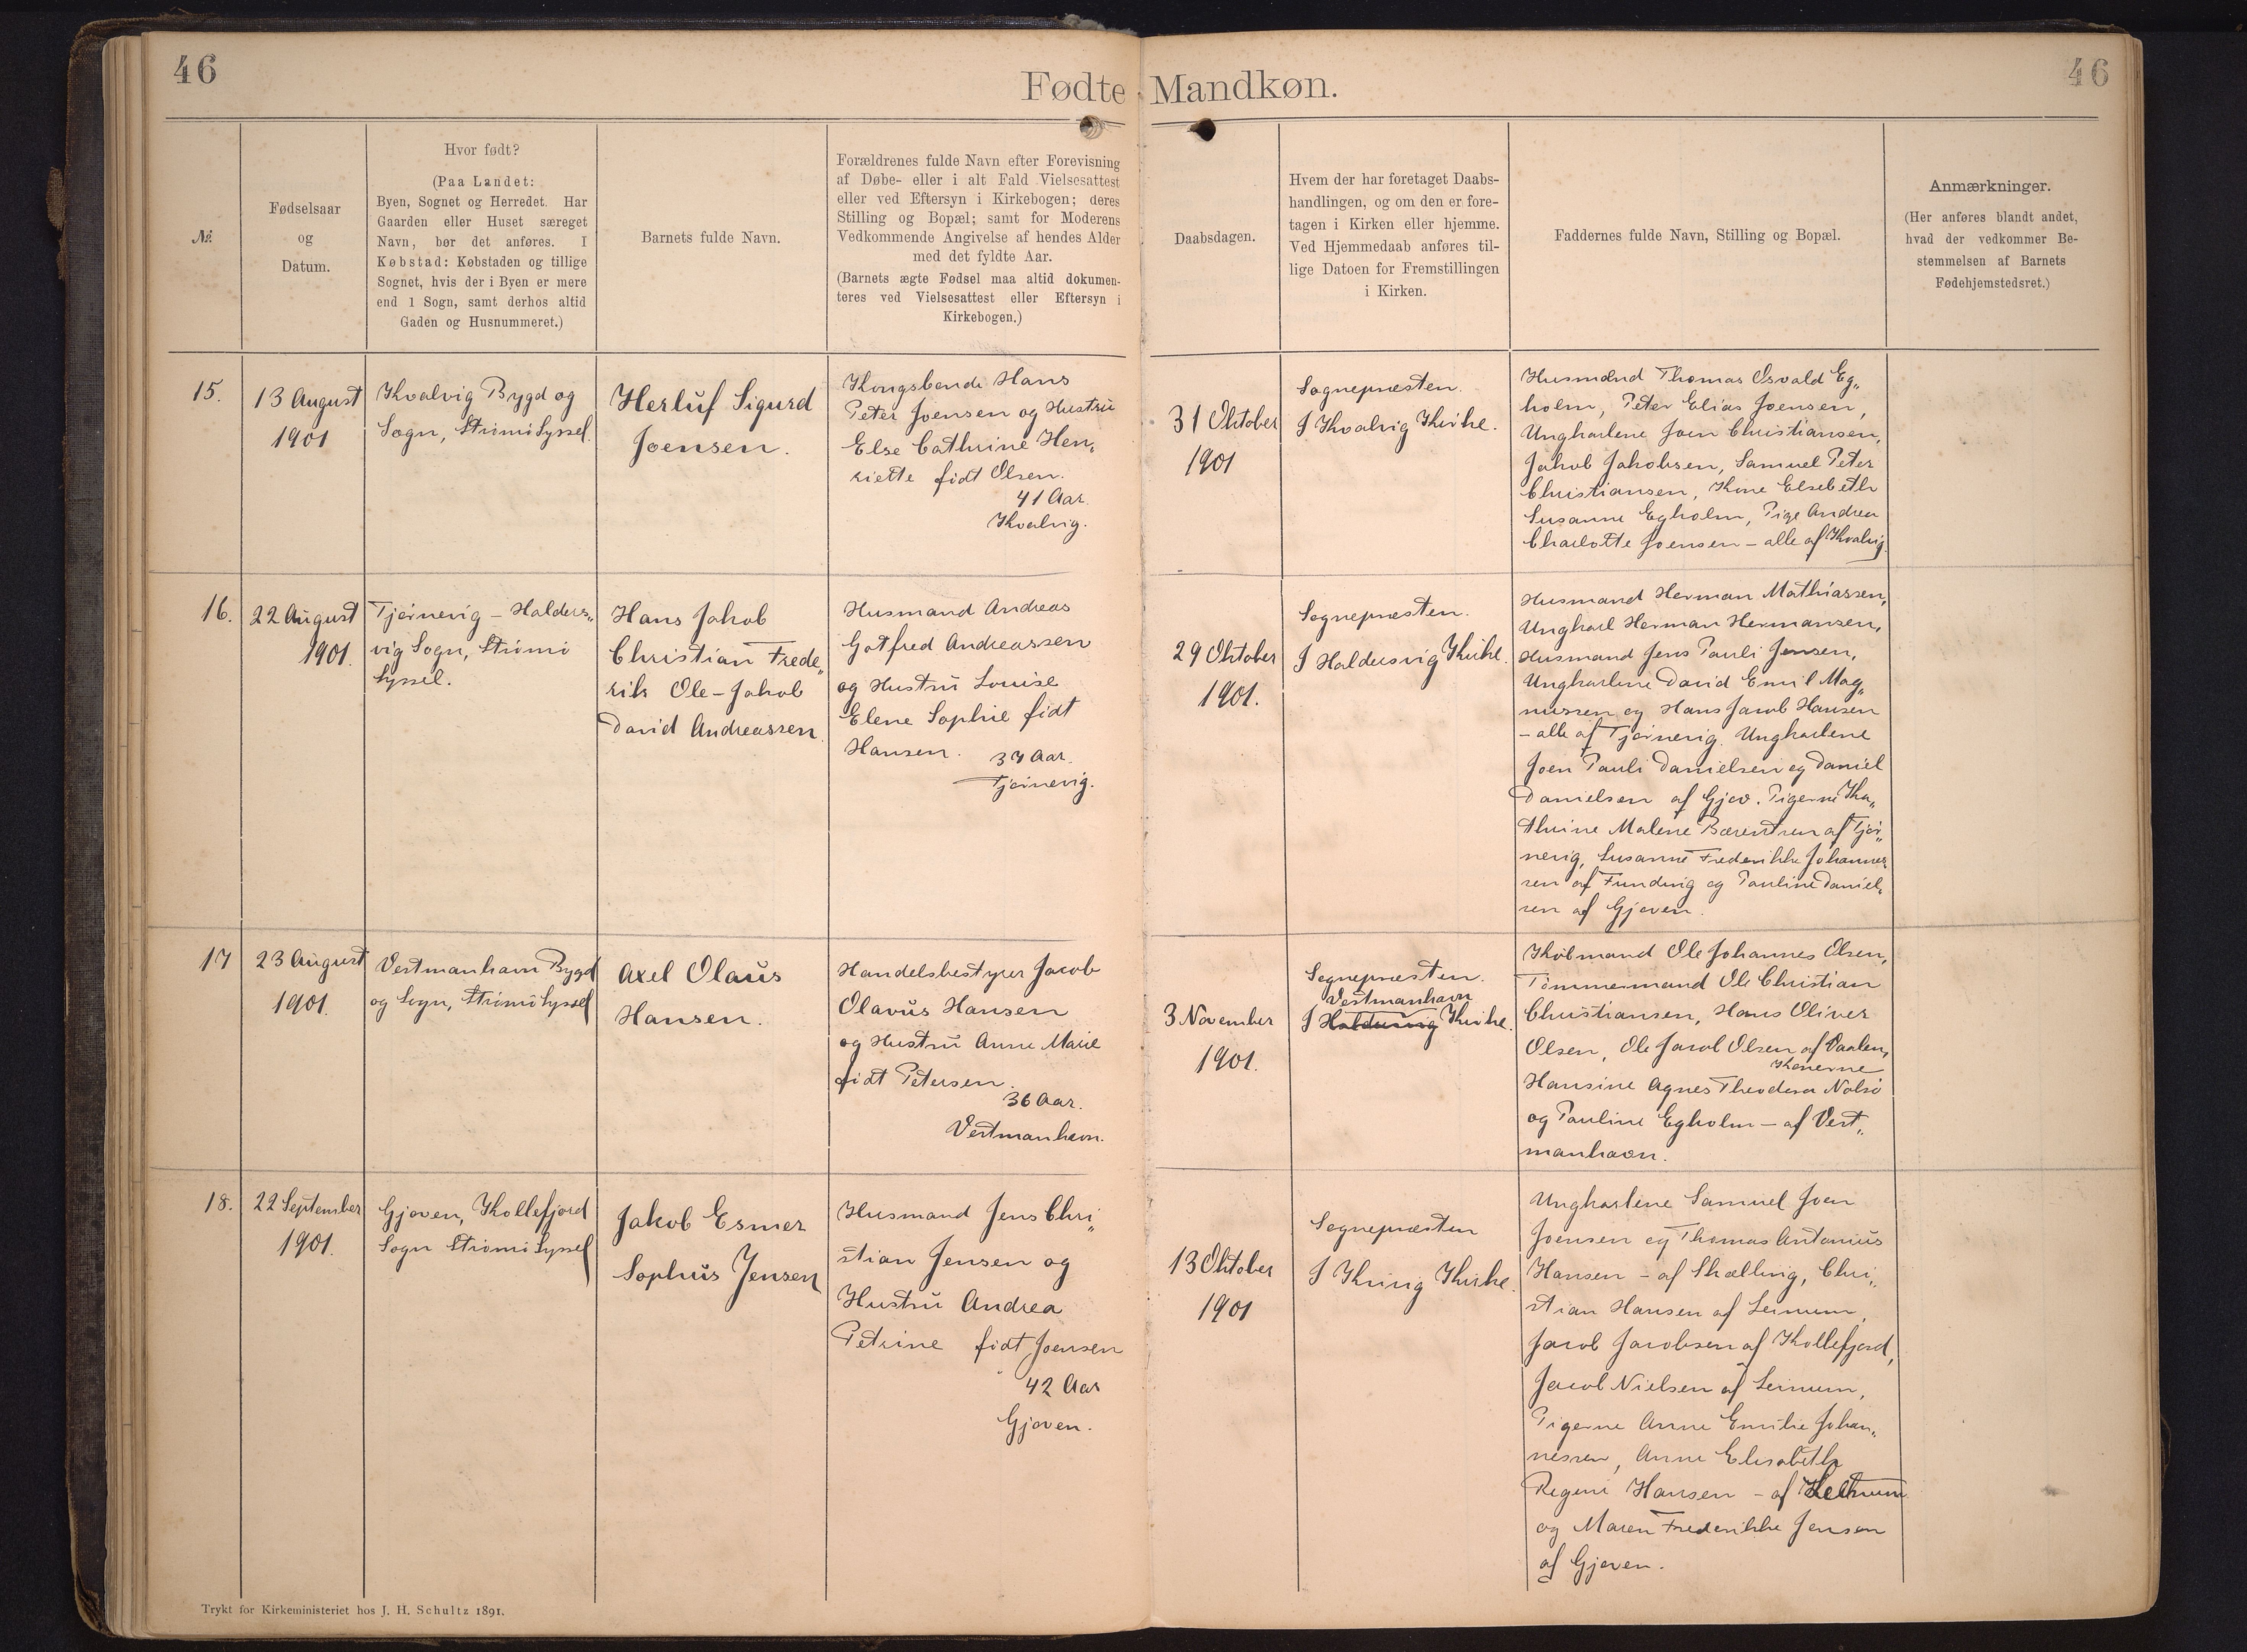 46
Fødte Mandkøn.
46
№
Fødselsaar
og
Datum.
Hvor født?
(Paa Landet:
Byen, Sognet og Herredet. Har
Gaarden eller Huset særeget
Navn, bør det anføres. I
Købstad: Købstaden og tillige
Sognet, hvis der i Byen er mere
end 1 Sogn, samt derhos altid
Gaden og Husnummeret.)
Barnets fulde Navn.
Forældrenes fulde Navn efter Forevisning
af Døbe- eller i alt Fald Vielsesattest
eller ved Eftersyn i Kirkebogen; deres
Stilling og Bopæl; samt for Moderens
Vedkommende Angivelse af hendes Alder
med det fyldte Aar.
(Barnets ægte Fødsel maa altid dokumen-
teres ved Vielsesattest eller Eftersyn i
Kirkebogen.)
Daabsdagen.
Hvem der har foretaget Daabs-
handlingen, og om den er fore-
tagen i Kirken eller hjemme.
Ved Hjemmedaab anføres til-
lige Datoen for Fremstillingen
i Kirken.
Faddernes fulde Navn, Stilling og Bopæl.
Anmærkninger.
(Her anføres blandt andet,
hvad der vedkommer Be-
stemmelsen af Barnets
Fødehjemstedsret.)
15.
13 August
1901
Kvalvig Bygd og
Sogn, Strømø Syssel.
Herluf Sigurd
Joensen.
Kongsbonde Hans
Peter Joensen og Hustru
Else Cathrine Hen„
riette født Olsen.
41 Aar.
Kvalvig.
31 Oktober
1901
Sognepræsten.
I Kvalvig Kirke.
Husmand Thomas Osvald Eg„
holm, Peter Elias Joensen,
Ungkarlene Joen Christiansen,
Jakob Jakobsen, Samuel Peter
Christiansen, Kone Elsebeth
Susanne Egholm, Pige Andrea
Charlotte Joensen – alle af Kvalvig.
16.
22 August
1901.
Tjørnevig – Halders„
vig Sogn, Strømø
Syssel.
Hans Jakob
Christian Frede„
rik Ole-Jakob
David Andreassen.
Husmand Andreas
Gotfred Andreassen
og Hustru Louise
Elene Sophie født
Hansen. 37 Aar.
Tjørnevig.
29 Oktober
1901.
Sognepræsten.
I Haldersvig Kirke.
Husmand Herman Mathiassen,
Ungkarl Herman Hermansen,
Husmand Jens Pauli Jensen,
Ungkarlene David Emil Mag„
nussen og Hans Jacob Hansen
– alle af Tjørnevig. Ungkarlene
Joen Pauli Danielsen og Daniel
Danielsen af Gjov. Pigerne Ka„
thrine Malene Bærentsen af Tjør„
nevig, Susanne Frederikke Johannes„
sen af Funding og Pauline Daniel„
sen af Gjoven.
17
23 August
1901.
Vestmanhavn Bygd
og Sogn, Strømø Syssel
Axel Olaus
Hansen.
Handelsbestyrer Jacob
Olavus Hansen
og Hustru Anne Marie
født Petersen.
36 Aar.
Vestmanhavn.
3 November
1901.
Sognepræsten.
Vestmanhavn
I Haldersvig Kirke.
Købmand Ole Johannes Olsen,
Tømmermand Ole Christian
Christiansen, Hans Oliver
Olsen, Ole Jacob Olsen af Vaalen,
Konerne
Hansine Agnes Theodora Nolsø
og Pauline Egholm – af Vest„
manhavn.
18.
22 September
1901.
Gjoven, Kollefjord
Sogn Strømø Syssel
Jakob Esmer
Sophus Jensen
Husmand Jens Chri„
stian Jensen og
Hustru Andrea
Petrine født Joensen
42 Aar
Gjoven.
13 Oktober
1901
Sognepræsten
I Kvivig Kirke.
Ungkarlene Samuel Joen
Joensen og Thomas Antonius
Hansen – af Skælling, Chri„
stian Hansen af Leinum,
Jacob Jacobsen af Kollefjord,
Jacob Nielsen af Leinum,
Pigerne Anne Emilie Johan„
nessen, Anne Elisabeth
Regine Hansen – af
og Maren Frederikke Jensen
af Gjoven.
Trykt for Kirkeministeriet hos J. H. Schultz 1891.